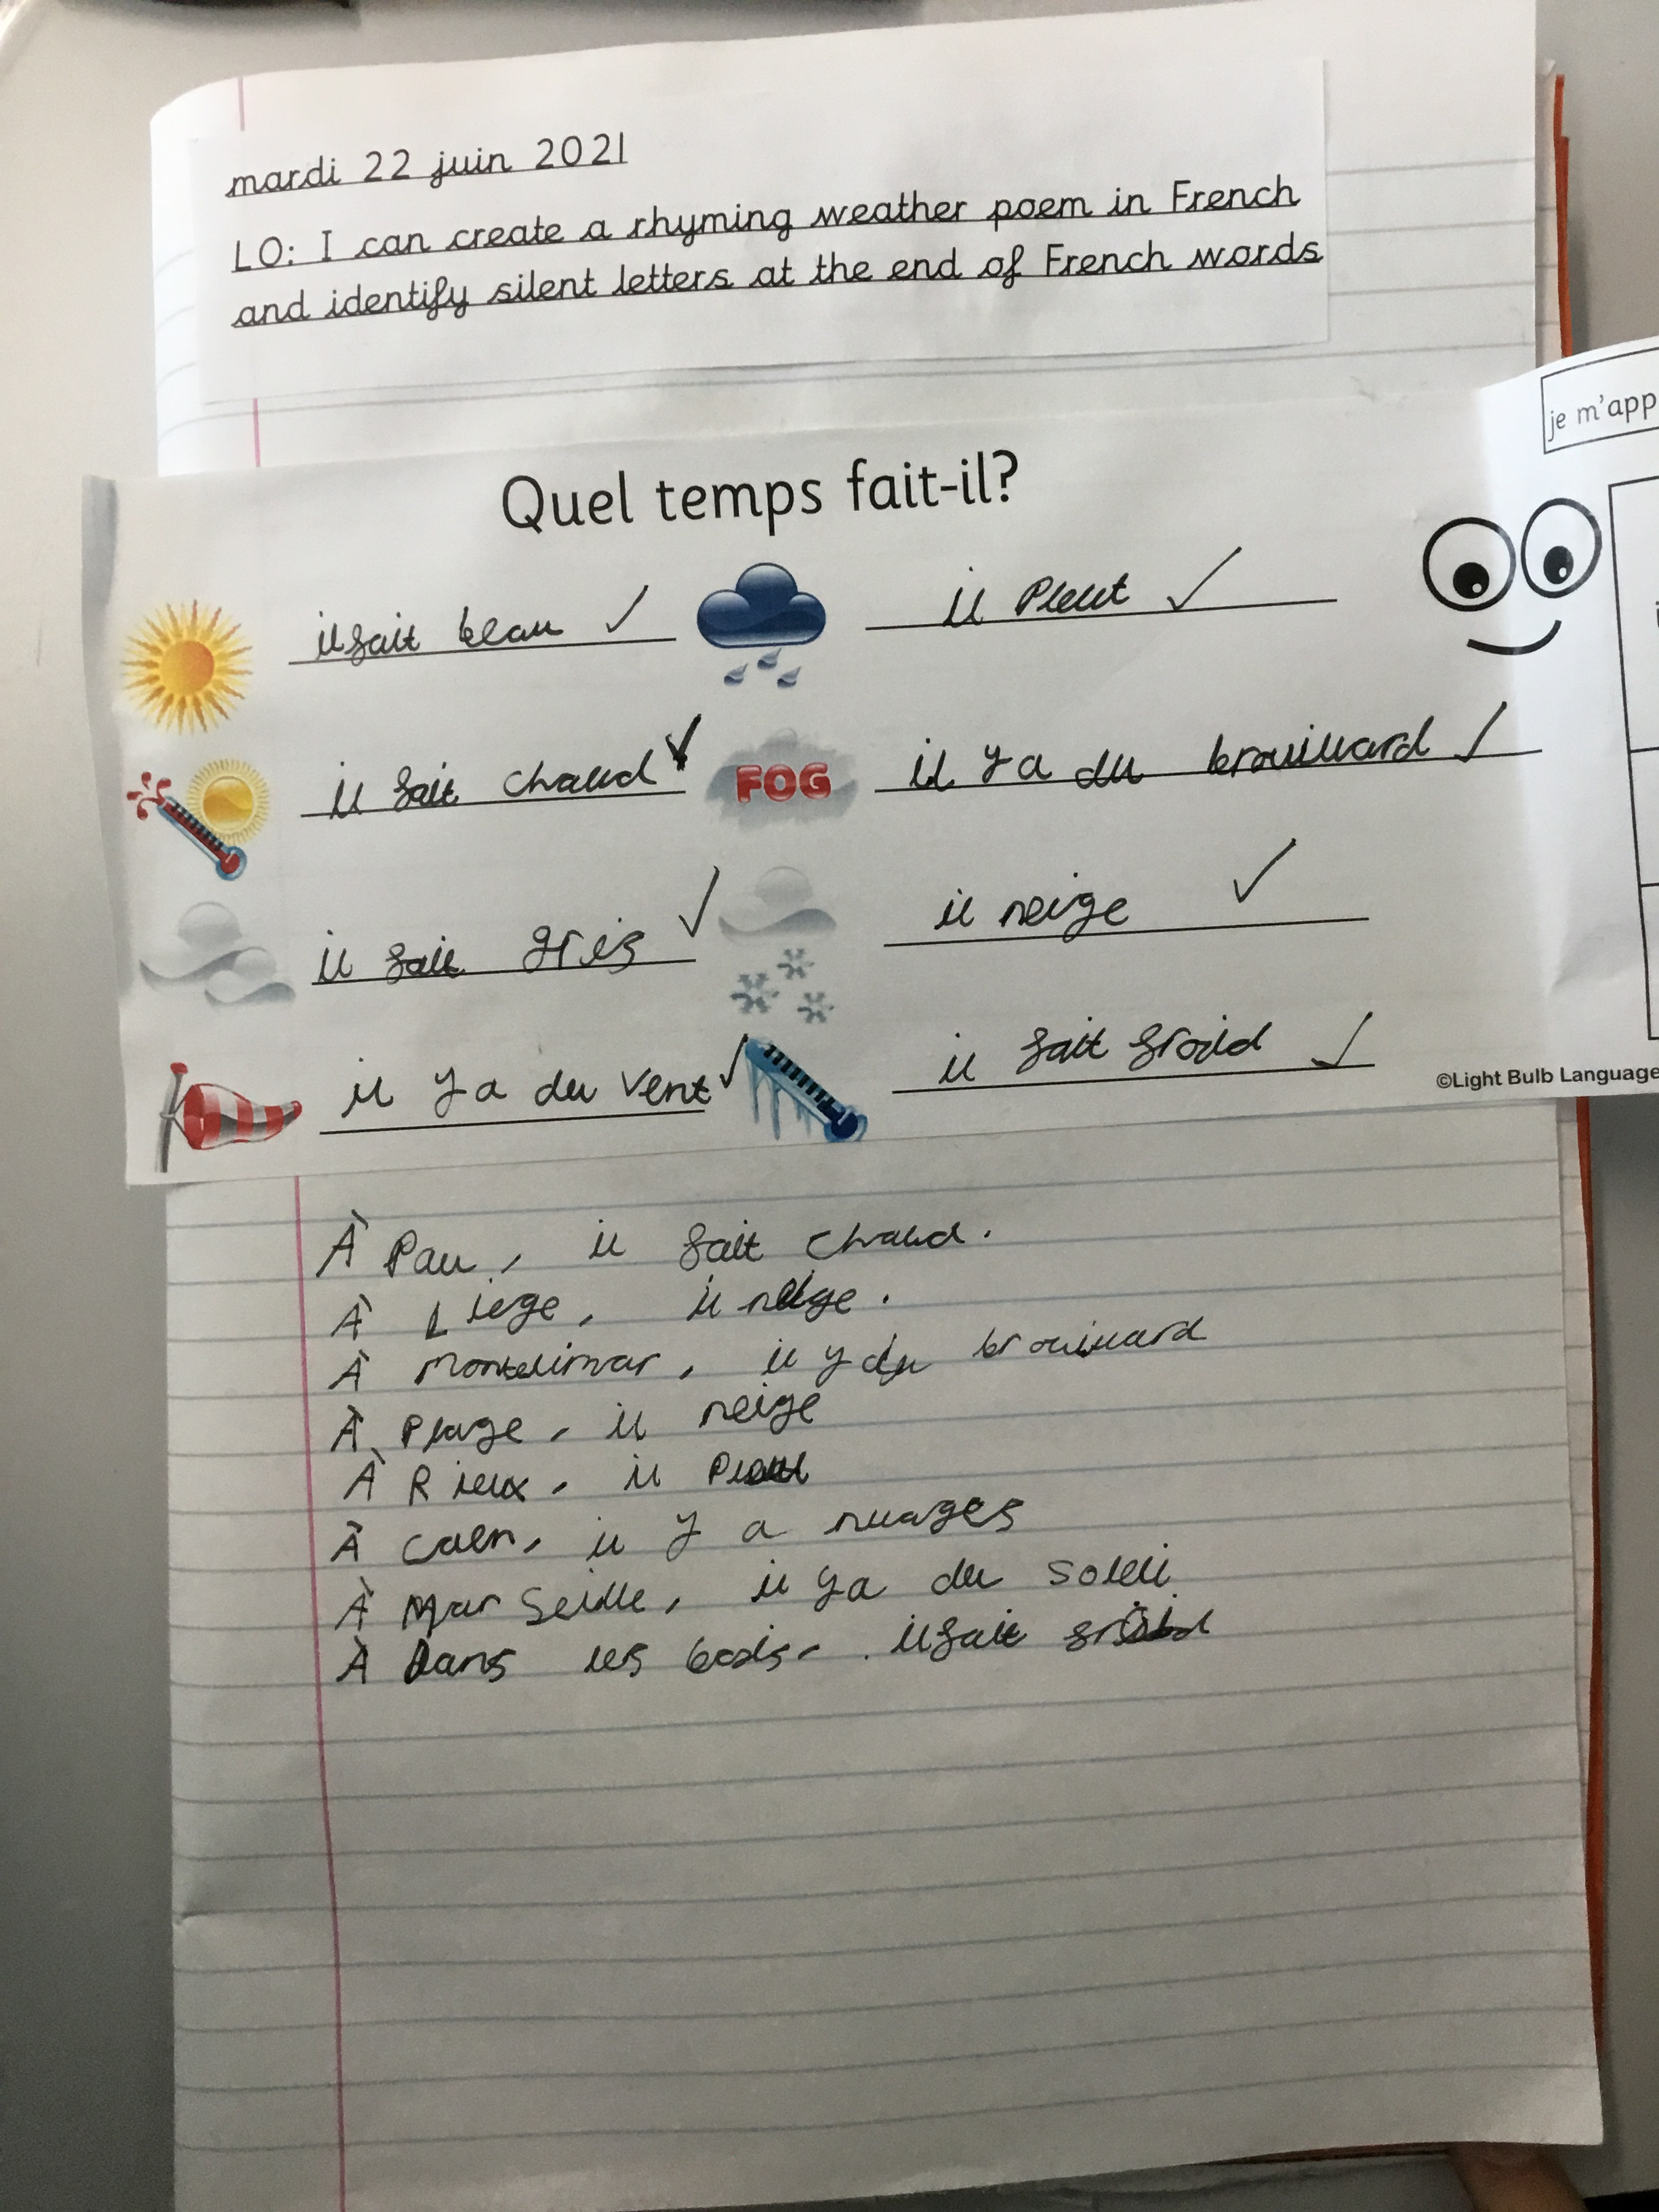 mardi 22 juin 2021
LO: I can create a rhyming weather poem in French
and identify silent letters at the end of French words
je m'app
Quel temps fait-il?
il fait beau ✓
il Pleut ✓
il fait chaud ✓
FOG
il y a du brouillard ✓
il fait gris ✓
il neige ✓
il y a du vent ✓
il fait froid ✓
©Light Bulb Language
À Pau, il fait chaud.
À Liege, il neige.
À montelimar, il y du brouillard
À Plage, il neige
À Rieux, il
À Caen, il y a nuages
À Marseille, il y a du soleil
À Dans les bois, il fait froid